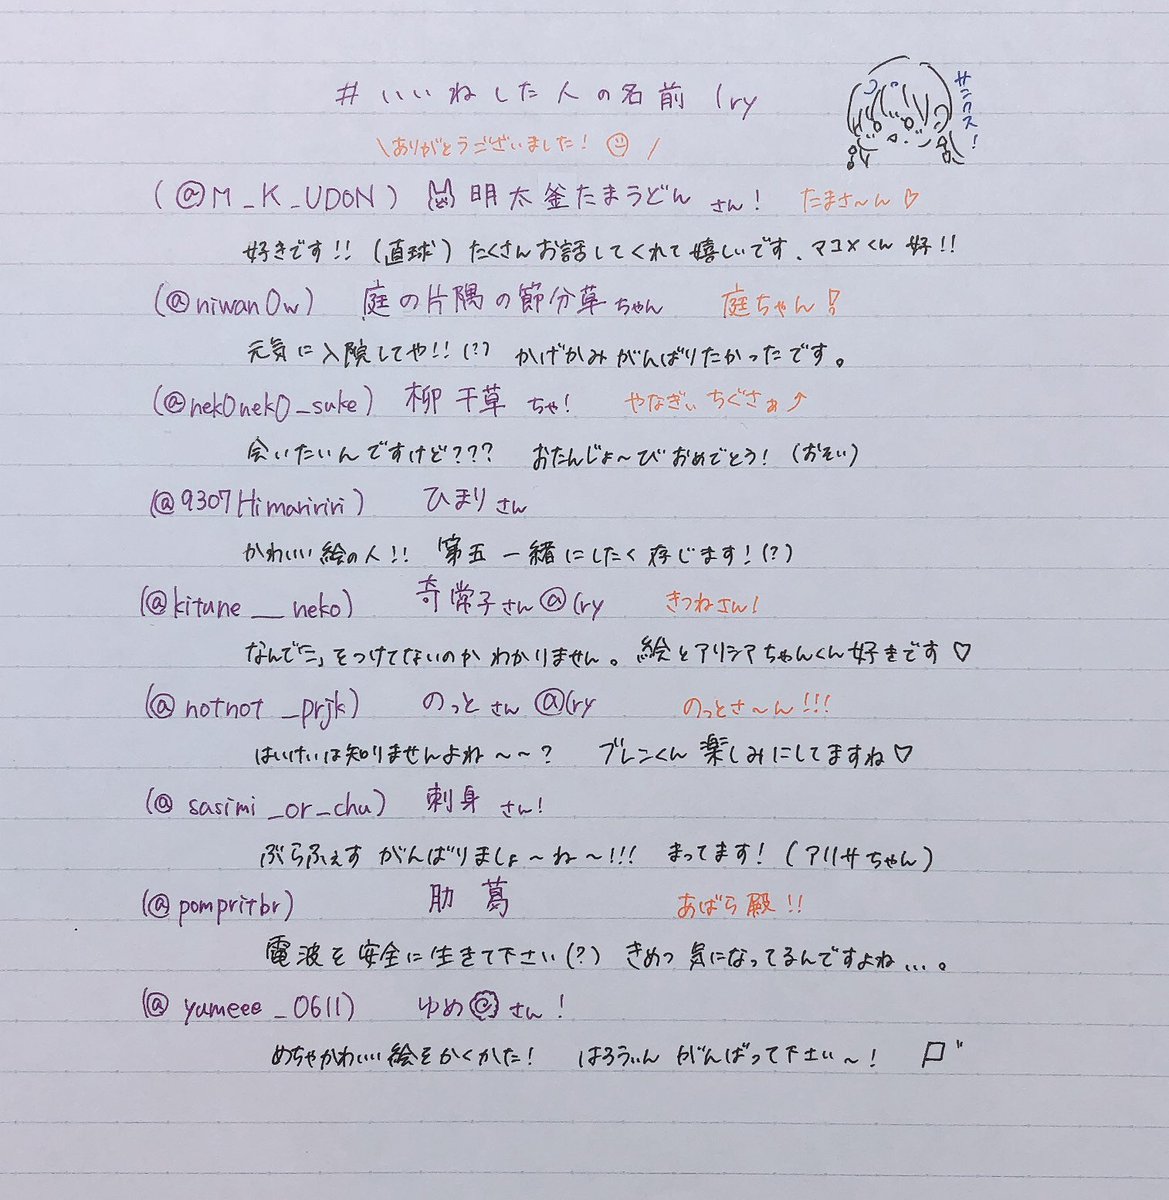 #いいねした人の名前 (ry
サンクス!
\ありがとうございました! /
(@M_K_UDON) 明太釜たまうどん さん! たまさ〜ん♡
好きです!!(直球)たくさんお話してくれて嬉しいです、マコメくん 好!!
(@niwan0w) 庭の片隅の節分草ちゃん 庭ちゃん!
元気に入院してや!!(?) かげかみがんばりたかったです。
(@nek0nek0_suke) 柳 千草 ちゃ! やなぎぃ ちぐさぁ↗
会いたいんですけど??? おたんじょ〜びおめでとう!(おそい)
(@9307Himariririri) ひまりさん
かわいい絵の人!! 第五 一緒にしたく存じます!(?)
(@kitune__neko) 奇常子さん@(ry きつねさん!
なんで「をつけてないのかわかりません。絵とアリシアちゃんくん好きです♡
(@notnot_prjk) のっとさん@(ry のっとさ〜ん!!!
はいけいは知りませんよね〜〜? ブレンくん楽しみにしてますね♡
(@sasimi_or_chu) 刺身 さん!
ぶらふぇす がんばりましょ〜ね〜!!! まってます!(アリサちゃん)
(@pompritbr) 肋 葛 あばら殿!!
電波を安全に生きて下さい(?) きめつ 気になってるんですよね...。
(@yumeee_0611) ゆめ さん!
めちゃかわいい絵をかくかた! はろうぃん がんばって下さい〜!